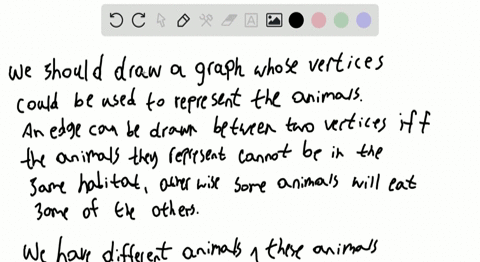 we should draw a graph whose vertices
could be used to represent the animals.
An edge can be drawn between two vertices iff
the animals they represent cannot be in the
same habitat, otherwise some animals will eat
some of the others.
We have different animals these animals